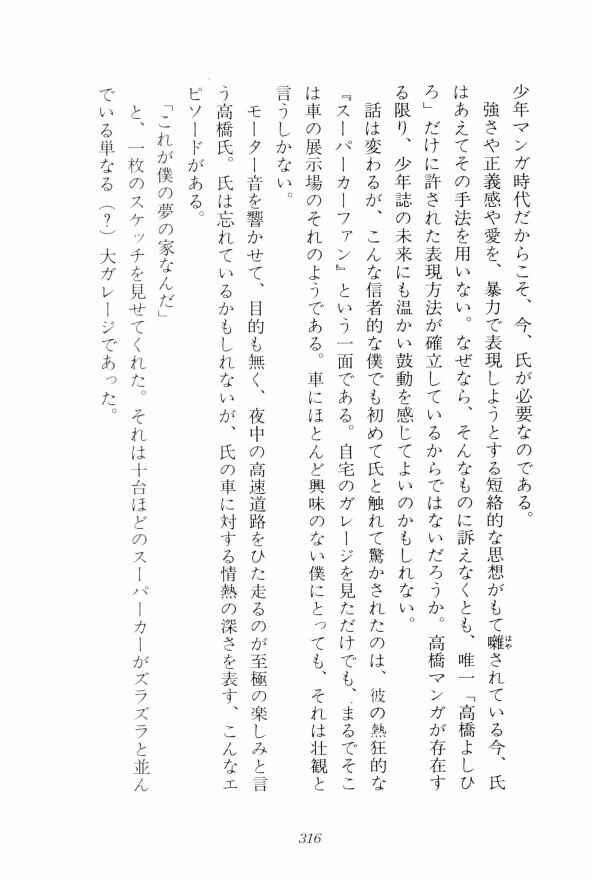 少年マンガ時代だからこそ、今、氏が必要なのである。
　強さや正義感や愛を、暴力で表現しようとする短絡的な思想がもて囃されている今、氏
はあえてその手法を用いない。なぜなら、そんなものに訴えなくとも、唯一「高橋よしひ
ろ」だけに許された表現方法が確立しているからではないだろうか。高橋マンガが存在す
る限り、少年誌の未来にも温かい鼓動を感じてよいのかもしれない。
　話は変わるが、こんな信者的な僕でも初めて氏と触れて驚かされたのは、彼の熱狂的な
『スーパーカーファン』という一面である。自宅のガレージを見ただけでも、まるでそこ
は車の展示場のそれのようである。車にほとんど興味のない僕にとっても、それは壮観と
言うしかない。
　モーター音を響かせて、目的も無く、夜中の高速道路をひた走るのが至極の楽しみと言
う高橋氏。氏は忘れているかもしれないが、氏の車に対する情熱の深さを表す、こんなエ
ピソードがある。
「これが僕の夢の家なんだ」
　と、一枚のスケッチを見せてくれた。それは十台ほどのスーパーカーがズラズラと並ん
でいる単なる（？）大ガレージであった。
はや
316